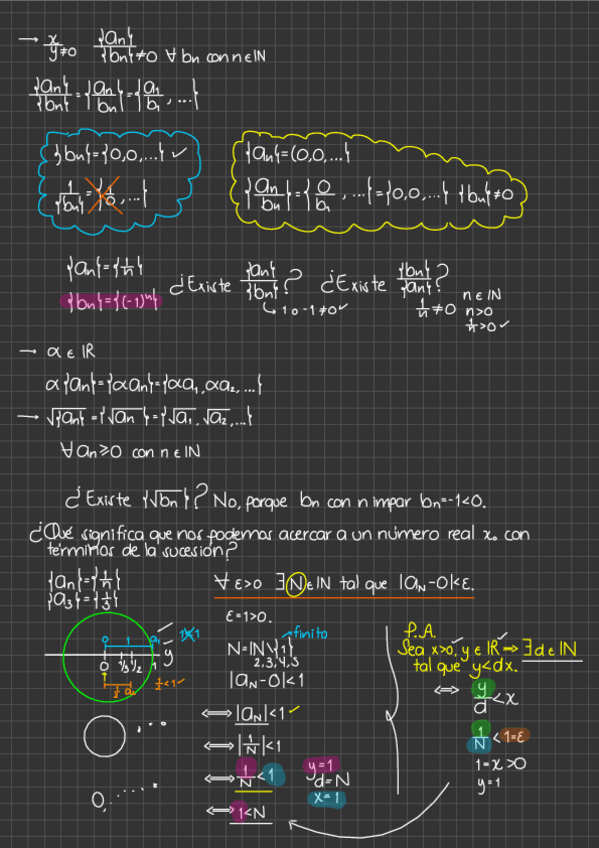 → x/y≠0 {an}/{bn}≠0 ∀ bn con n∈IN
{an}/{bn}={an/bn}={a1/b1, ...}
{bn}={0,0,...} ✓
1/{bn}={1/0,...}
{an}=(0,0,...}
{an/bn}={0/b1, ...}={0,0,...} {bn}≠0
{an}={1/n}
{bn}={(-1)^n}
¿Existe {an}/{bn}?
↳ 1 o -1≠0✓
¿Existe {bn}/{an}?
1/n≠0 n∈IN
n>0
1/n>0✓
→ α∈IR
α{an}={αan}={αa1,αa2,...}
→ √{an}={√an}={√a1,√a2,...}
∀an≥0 con n∈IN
¿Existe {√bn}? No, porque bn con n impar bn=-1<0.
¿Qué significa que nos podemos acercar a un número real x0 con
términos de la sucesión?
{an}={1/n}
{a3}={1/3}
∀ε>0 ∃N∈IN tal que |aN-0|<ε.
0 1 a1 1<1
0 1/3 1/2 1 y
1/2 a2 1/2<1✓
0
ε=1>0.
N=IN\{1} → finito
2,3,4,5
|aN-0|<1
⟺|aN|<1 ✓
⟺|1/N|<1
⟺1/N<1
⟺1<N
y=1
d=N
x=1
P.A.
Sea x>0, y∈IR ⇒ ∃d∈IN
tal que y<dx.
⟺ y/d<x
1/N<1=ε
1=x>0
y=1